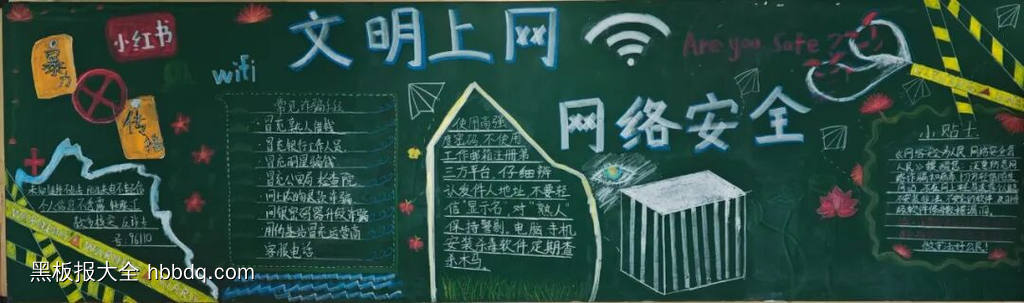 文明上网
网络安全
Are you safe ???
小红书
wifi
暴力
传播
常见诈骗手段
冒充熟人借钱
冒充银行工作人员
冒充明星骗钱
冒充公安局 检查院
网上购物退款诈骗
网银密码器升级诈骗
用伪基站冒充运营商
客服电话
使用高强
度密码 不使用
工作邮箱注册第
三方平台,仔细辨
认发件人地址 不要轻
信"显示名" 对"熟人"
保持警惕,电脑 手机
安装杀毒软件 定期查
杀木马
小贴士
号:96110
WARNING
黑板报大全 hbbdq.com